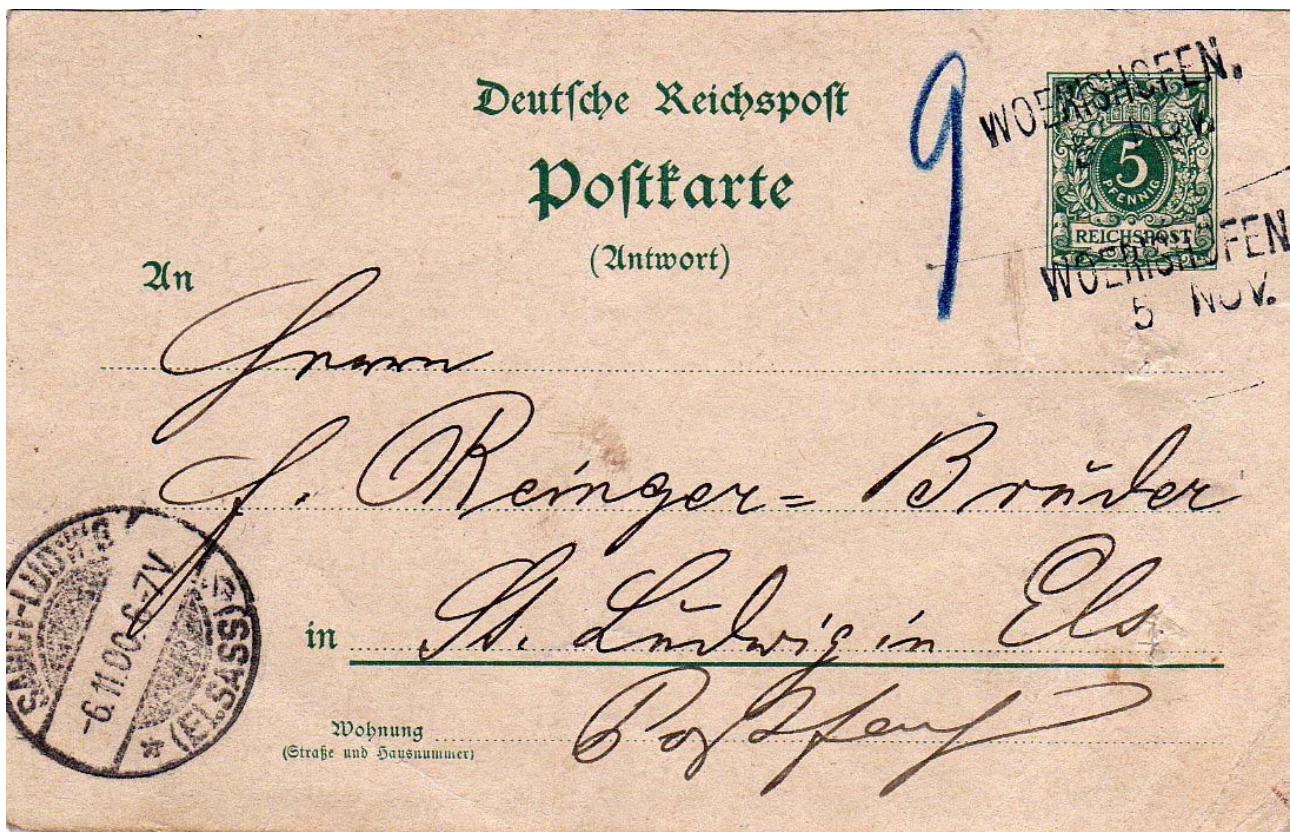 Deutsche Reichspost
Postkarte
(Antwort)
9
WOERISHOFEN.
NOV.
5
PFENNIG
REICHSPOST
WOERISHOFEN
5 NOV.
An
Herrn
J. Reinger= Brüder
in St. Ludwig in Els.
Wohnung
(Straße und Hausnummer)
SANCT-LUDWIG
-6.11.00.6-7V
* (ELSASS) *